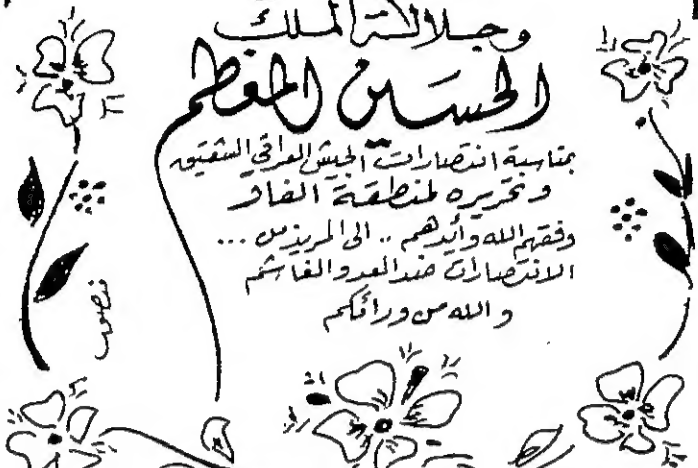 وجلالة الملك
الحسين المعظم
بمناسبة انتصارات الجيش العراقي الشقيق
وتحريره لمنطقة الفاو
وفقهم الله وأيدهم .. الى المزيد من ...
الانتصارات ضد العدو الغاشم
والله من ورائكم